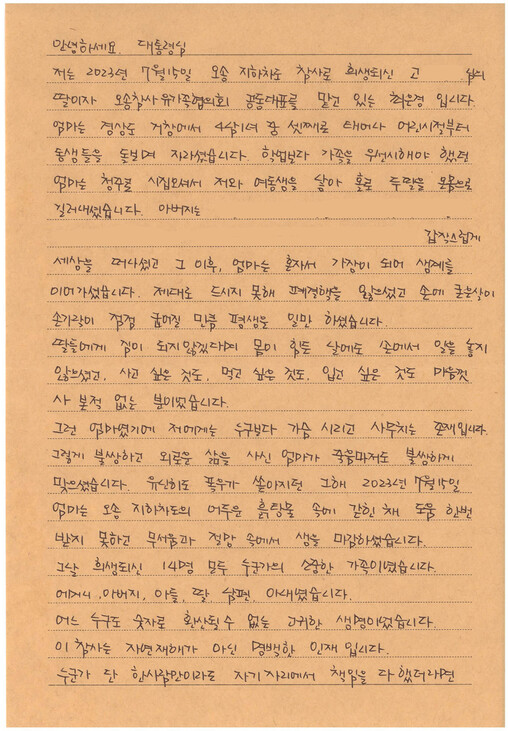 안녕하세요. 대통령님
저는 2023년 7월15일 오송 지하차도 참사로 희생되신 고 님의
딸이자 오송참사 유가족협의회 공동대표를 맡고 있는 최은경 입니다.
엄마는 경상도 거창에서 4남1녀 중 셋째로 태어나 어린시절부터
동생들을 돌보며 자라셨습니다. 학업보다 가족을 우선시해야 했던
엄마는 청주로 시집오셔서 저와 여동생을 낳아 홀로 두딸을 온몸으로
길러내셨습니다. 아버지는
갑작스럽게
세상을 떠나셨고 그 이후, 엄마는 혼자서 가장이 되어 생계를
이어가셨습니다. 제대로 드시지 못해 폐결핵을 앓으셨고 손에 굳은살이
손가락이 점점 굽어질 만큼 평생을 일만 하셨습니다.
딸들에게 짐이 되지않겠다며 몸이 힘든 날에도 손에서 일을 놓지
않으셨고, 사고 싶은 것도, 먹고 싶은 것도, 입고 싶은 것도 마음껏
사 본적 없는 분이었습니다.
그런 엄마였기에 저에게는 누구보다 가슴 시리고 사무치는 존재입니다.
그렇게 불쌍하고 외로운 삶을 사신 엄마가 죽음마저도 불쌍하게
맞으셨습니다. 유난히도 폭우가 쏟아지던 그해 2023년 7월15일
엄마는 오송 지하차도의 어두운 흙탕물 속에 갇힌 채 도움 한번
받지 못하고 무서움과 절망 속에서 생을 마감하셨습니다.
그날 희생되신 14명 모두 누군가의 소중한 가족이었습니다.
어머니, 아버지, 아들, 딸, 남편, 아내였습니다.
어느 누구도 숫자로 환산될 수 없는 고귀한 생명이었습니다.
이 참사는 자연재해가 아닌 명백한 인재입니다.
누군가 단 한사람만이라도 자기 자리에서 책임을 다 했더라면